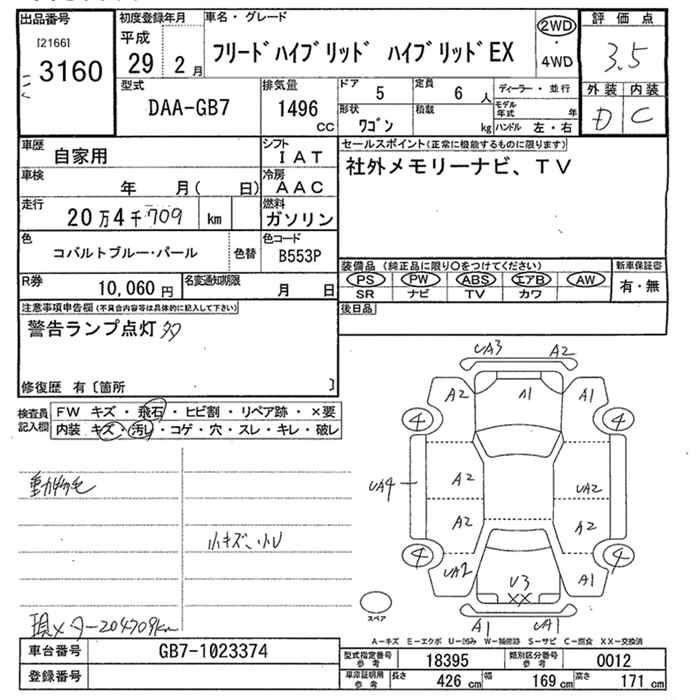 出品番号
[2166]
3160
初度登録年月
平成
29 2 月
車名・グレード
フリードハイブリッド ハイブリッドEX
2WD
・
4WD
評価点
3.5
外装 内装
D C
型式
DAA-GB7
排気量
1496 cc
ドア
5
定員
6 人
形状
ワゴン
積載
kg
ディーラー・並行
モデル年式 年
ハンドル 左・右
車歴
自家用
シフト
IAT
車検
年 月( 日)
冷房
AAC
走行
20万4千709 km
燃料
ガソリン
色
コバルトブルー・パール
色替
色コード
B553P
R券
10,060 円
名変通知期限
月 日
セールスポイント(正常に機能するものに限ります)
社外メモリーナビ、TV
装備品(純正品に限り〇をつけてください)
PS PW ABS エアB AW
SR ナビ TV カワ
新車保証書
有・無
後日品
注意事項申告欄(不具合内容等は具体的に記入して下さい)
警告ランプ点灯 多
修復歴 有〔箇所 〕
検査員記入欄
FW キズ・飛石・ヒビ割・リペア跡・×要
内装 キズ・汚レ・コゲ・穴・スレ・キレ・破レ
動物毛
小キズ、小U
現メーター204709km
UA3 A2
A2 A1 A1
4 4
UA4 A2 UA2
A2 A2
4 4
UA2 U3 A1
XX
A1 UA1
スペア
A-キズ E-エクボ U-凹み W-補修跡 S-サビ C-腐食 XX-交換済
車台番号
GB7-1023374
登録番号
型式指定番号参考
18395
類別区分番号参考
0012
車庫証明用参考
長さ 426 cm 幅 169 cm 高さ 171 cm